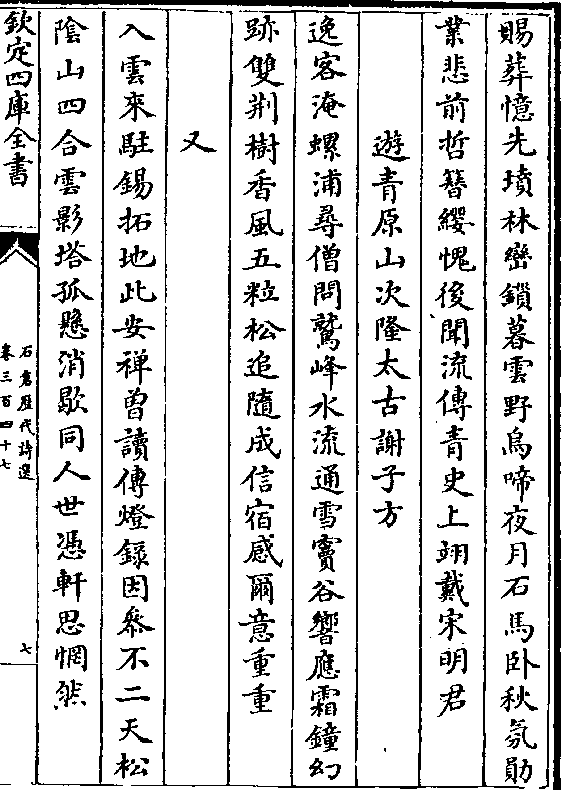 賜葬憶先墳林巒鎖暮雲野烏啼夜月石馬卧秋氛勛
業悲前哲簪纓愧後聞流傳青史上翊戴宋明君
遊青原山次隆太古謝子方
逸客淹螺浦尋僧問鷲峰水流通雪竇谷響應霜鐘幻
跡雙荆樹香風五粒松追隨成信宿感爾意重重
又
入雲來駐錫拓地此安禅曽讀傳燈録因叅不二天松
陰山四合雲影塔孤懸消歇同人世憑軒思惘然
欽定四庫全書
石倉歷代詩選
卷三百四十七
七